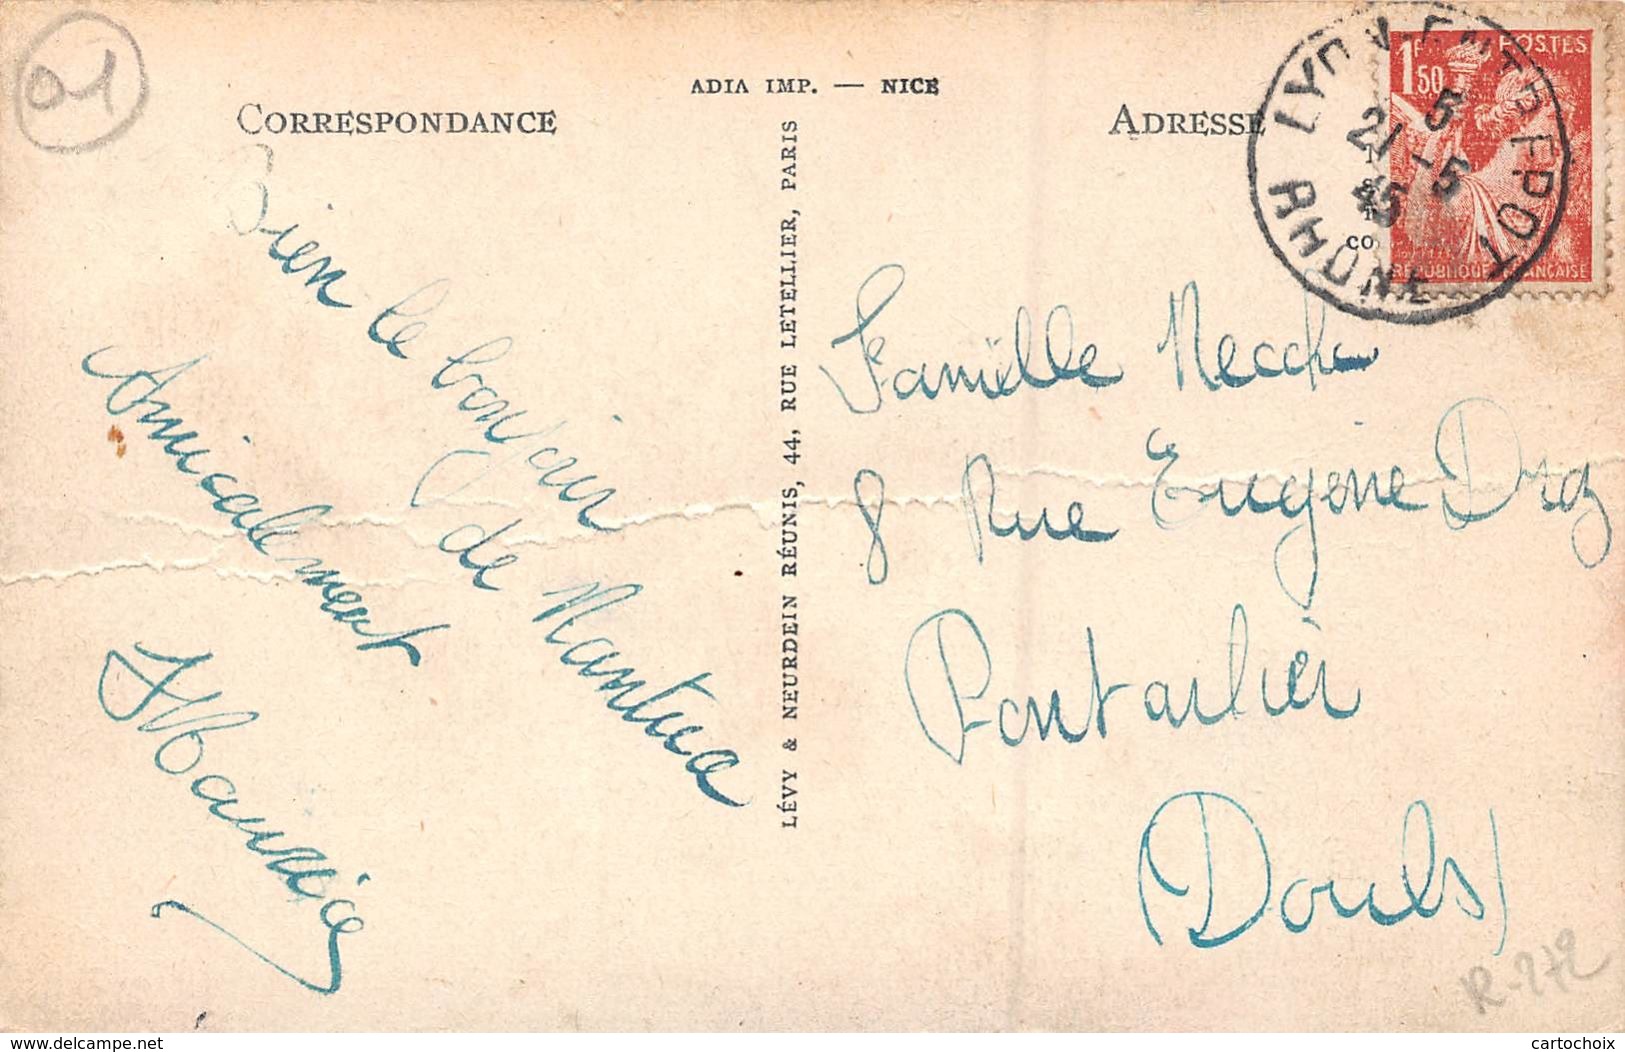 01
ADIA IMP. — NICE
CORRESPONDANCE
ADRESSE
Bien le bonjour
de Nantua
Amicalement
Maurice
LÉVY & NEURDEIN RÉUNIS, 44, RUE LETELLIER, PARIS
1F50
POSTES
RÉPUBLIQUE FRANÇAISE
LYON-ENTREPOT
RHONE
5
21 - 5
45
co
Famille
8 Rue Eugène Droz
Pontarlier
(Doubs)
R-272
www.delcampe.net
cartochoix